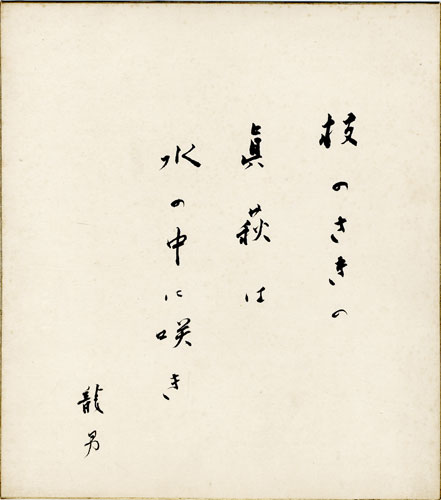 枝のさきの
眞萩は
水の中に咲き
龍男